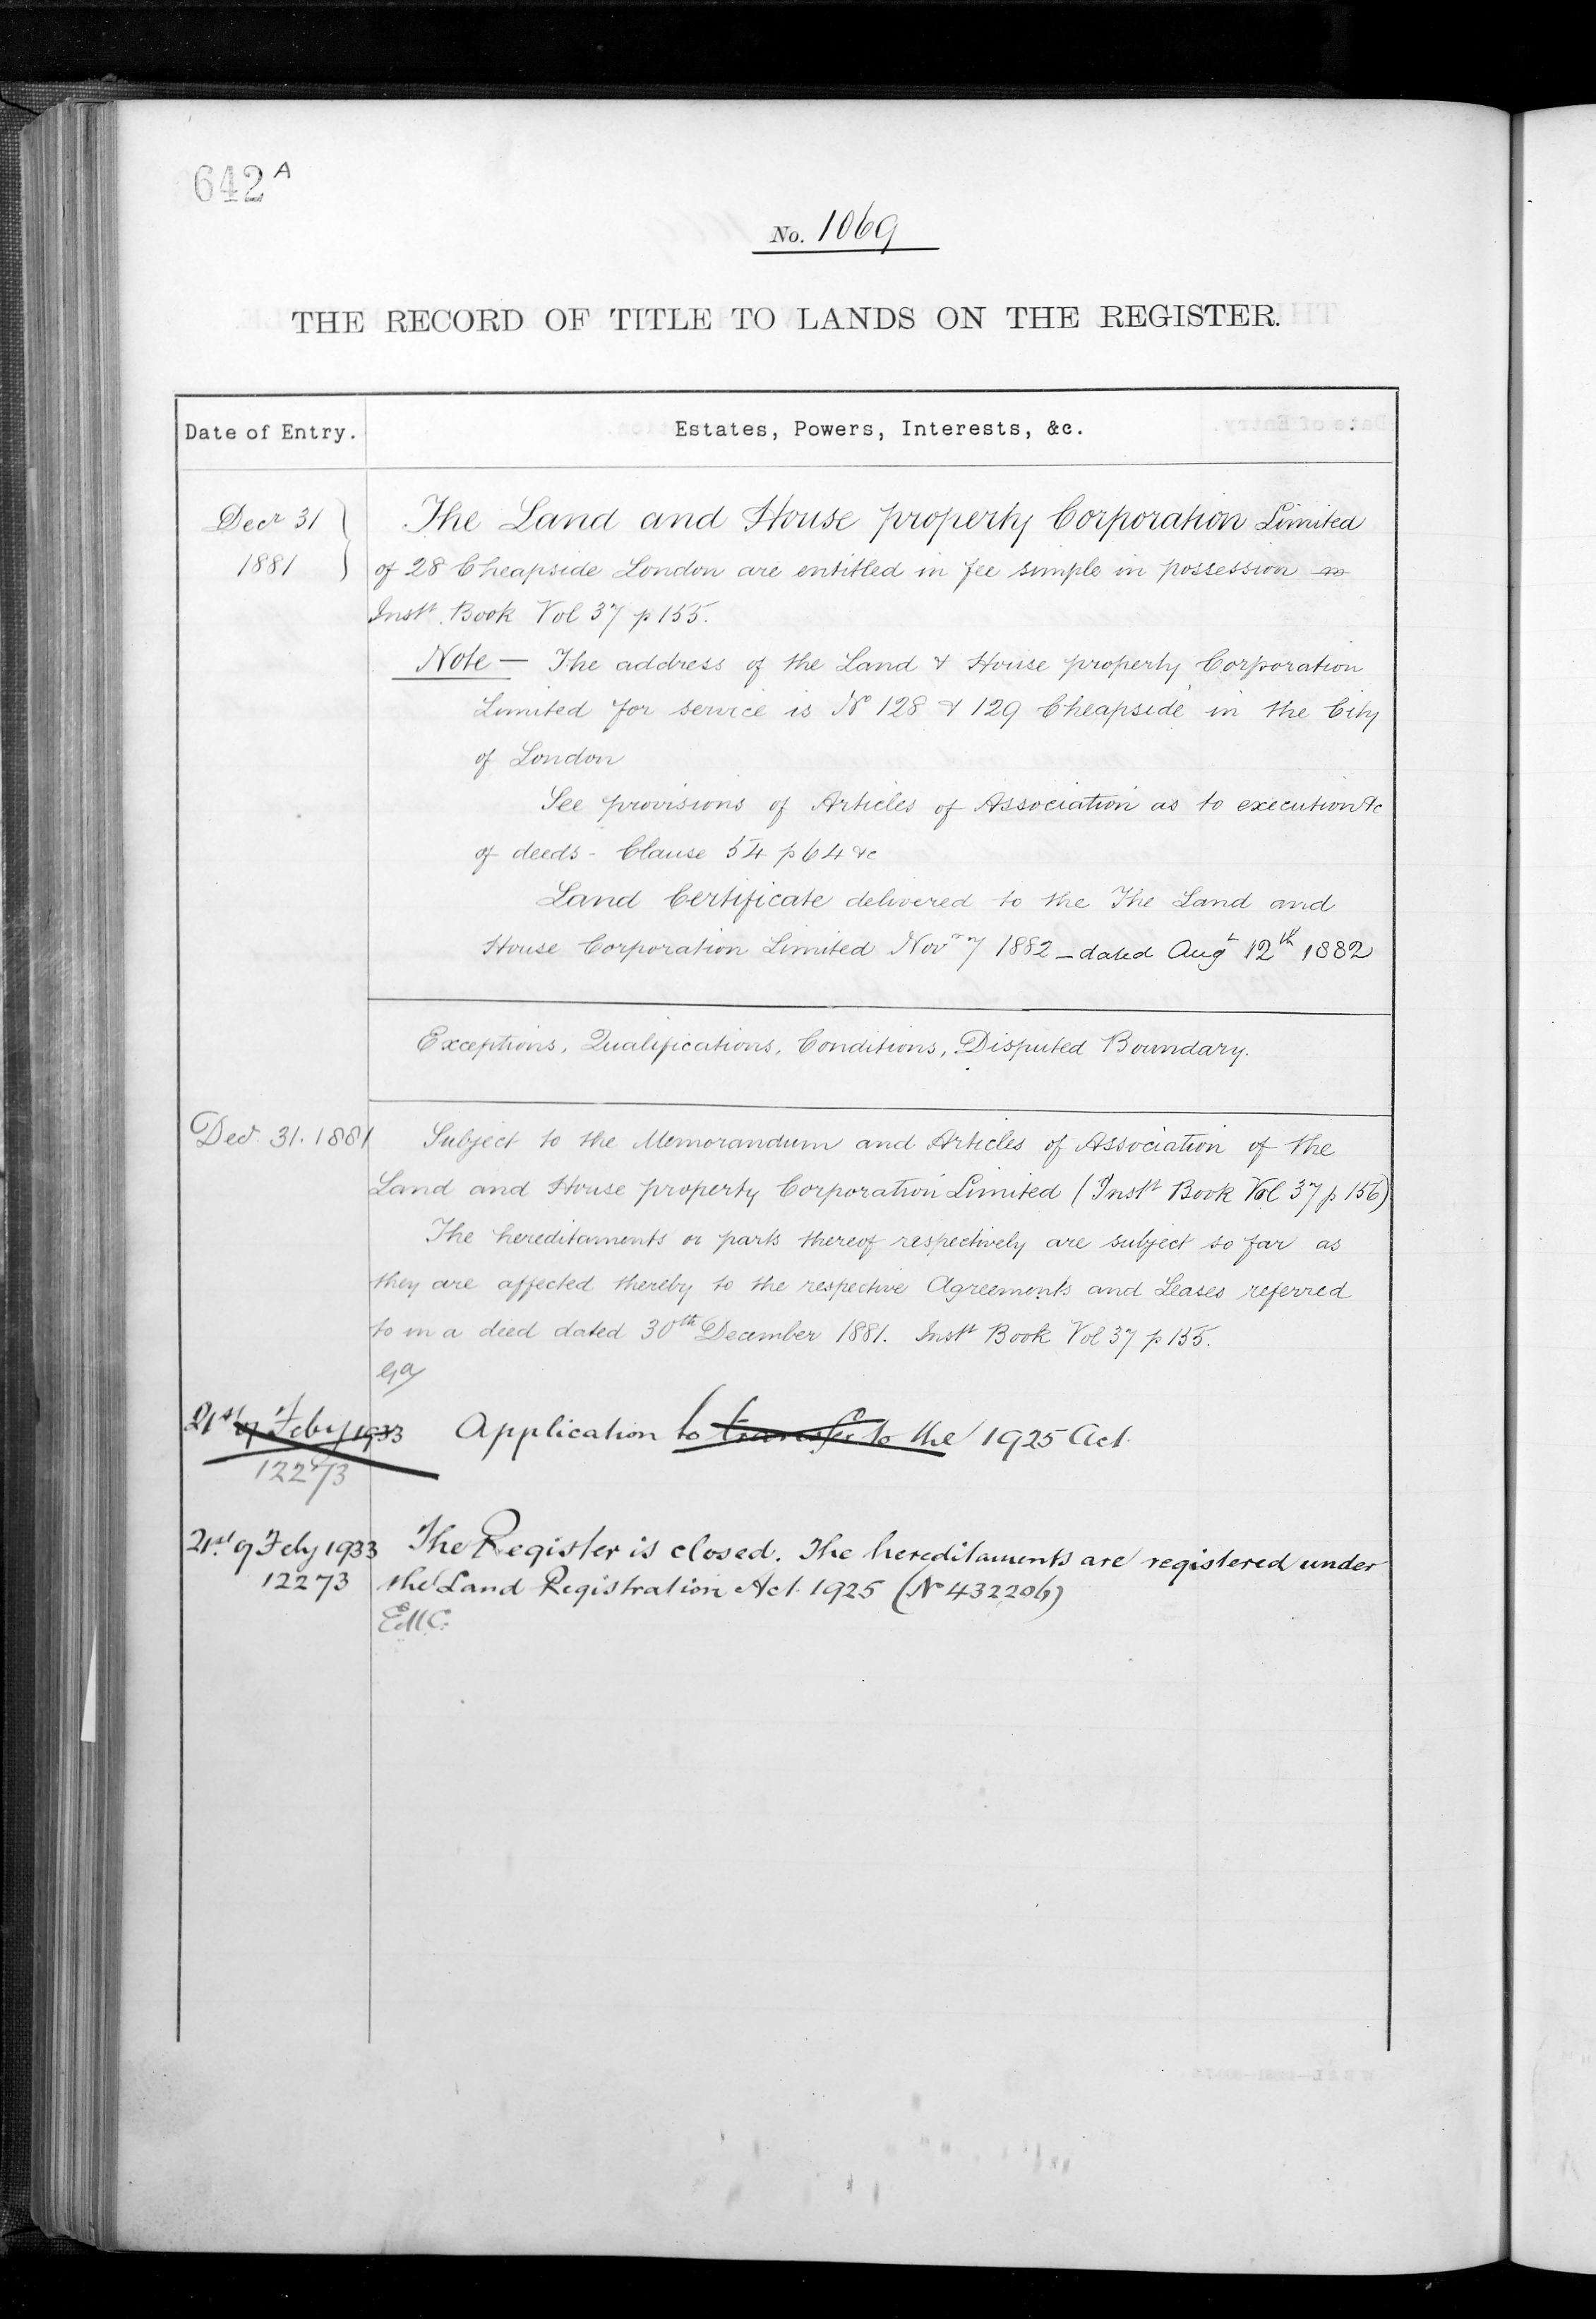 642 A
No. 1069
THE RECORD OF TITLE TO LANDS ON THE REGISTER.
Date of Entry. Estates, Powers, Interests, &c.
Decr 31 The Land and House property Corporation Limited
1881 of 28 Cheapside London are entitled in fee simple in possession
Instt. Book Vol 37 p 155.
Note — The address of the Land & House property Corporation
Limited for service is No 128 & 129 Cheapside in the City
of London
See provisions of Articles of Association as to execution &c
of deeds - Clause 54 p 64 &c
Land Certificate delivered to the The Land and
House Corporation Limited Novr 7 1882 — dated Augt 12th 1882
Exceptions, Qualifications, Conditions, Disputed Boundary.
Decr. 31. 1881 Subject to the Memorandum and Articles of Association of the
Land and House property Corporation Limited (Instt Book Vol 37 p 156)
The hereditaments or parts thereof respectively are subject so far as
they are affected thereby to the respective Agreements and Leases referred
to in a deed dated 30th December 1881. Instt Book Vol 37 p 155.
21st of Feby 1933 Application to transfer to the 1925 Act.
12273
21st of Feby 1933 The Register is closed. The hereditaments are registered under
12273 the Land Registration Act 1925 (No 432206)
EMC.